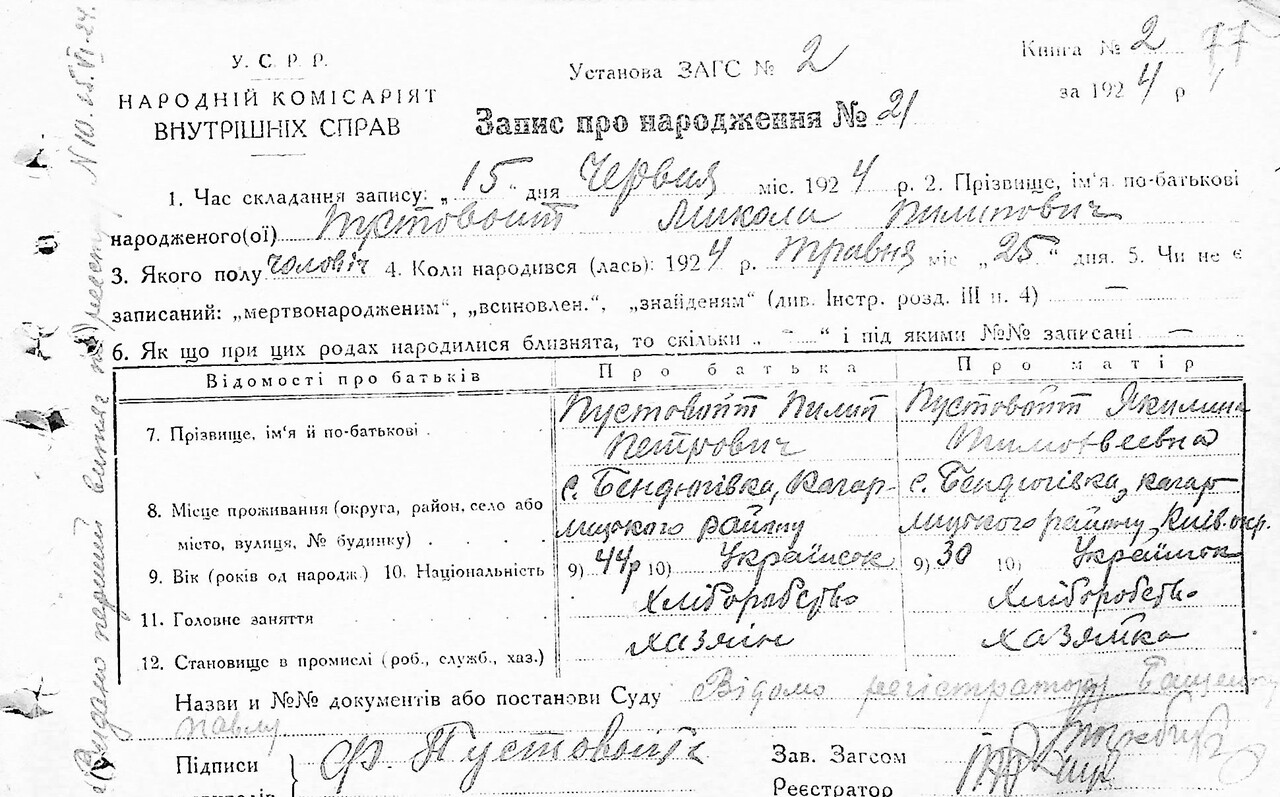 У. С. Р. Р.
НАРОДНІЙ КОМІСАРІЯТ
ВНУТРІШНІХ СПРАВ
Установа ЗАГС № 2
Книга № 2 77
за 1924 р
Запис про народження № 21
1. Час складання запису: „15“ дня Червня міс. 1924 р. 2. Прізвище, ім'я по-батькові
народженого(ої) Пустовойт Микола Пилипович
3. Якого полу чоловіч 4. Коли народився (лась): 1924 р. травня міс „25“ дня. 5. Чи не є
записаний: „мертвонародженим“, „всиновлен.“, „знайденям“ (див. Інстр. розд. III п. 4) —
6. Як що при цих родах народилися близнята, то скільки „ - “ і під якими №№ записані —
Відомості про батьків Про батька Про матір
7. Прізвище, ім'я й по-батькові . Пустовойт Пилип Петрович Пустовойт Якилина Тимофеевна
8. Місце проживання (округа, район, село або місто, вулиця, № будинку) . . . . с. Бендюгівка, Кагарлицького району с. Бендюгівка, кагарлицького району, Київ. окр.
9. Вік (років од народж.) 10. Національність 9) 44р 10) Українок 9) 30 10) Українок
11. Головне заняття . . . . . . Хліборобство Хліборобство
12. Становище в промислі (роб., служб., хаз.) хазяїн хазяйка
Назви и №№ документів або постанови Суду Відомо регістратору
Павлу
Підписи Ф. Пустовойт
Зав. Загсом
Реєстратор
Видано перший витяг по реєстру N 10. 25.VI-24.